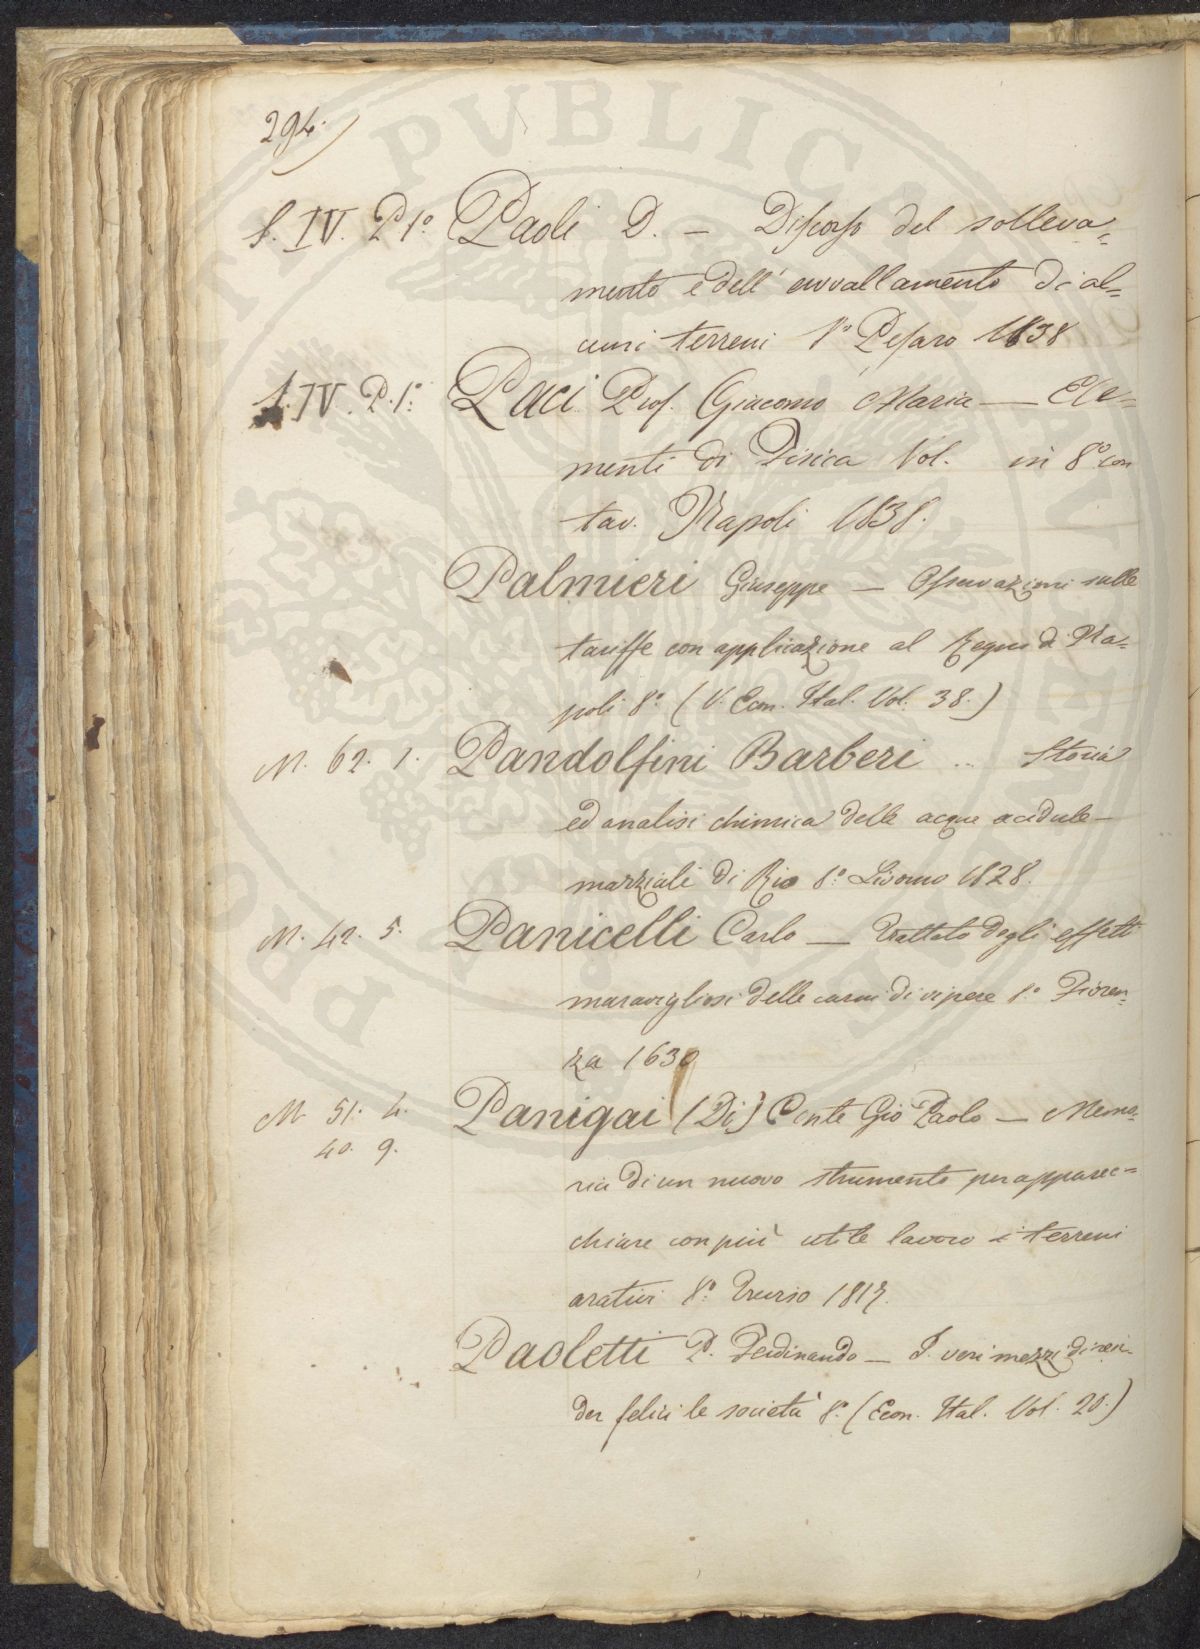 294.
S. IV. P. 1º. Paoli D. — Discorso del solleva=
mento e dell' avvallamento di al=
cuni terreni 8º Pesaro 1838
S. IV. P. 1º. Paci Prof. Giacomo Maria — Ele=
menti di Fisica Vol. in 8º con
tav. Napoli 1838.
Palmieri Giuseppe — Osservazioni sulle
tariffe con applicazione al Regno di Na=
poli 8º (V. Econ. Ital. Vol. 38.)
M. 62. 1. Pandolfini Barberi .. Storia
ed analisi chimica delle acque acidule—
marziali di Rio 8º Livorno 1828.
M. 42. 5. Panicelli Carlo — Trattato degli effetti
maravigliosi delle carni di vipere 8º Fioren=
za 1630
M. 51. 4. Panigai (Di) Conte Gio Paolo — Memo=
40. 9.
ria di un nuovo strumento per apparec=
chiare con più utile lavoro i terreni
arativi 8º Treviso 1817.
Paoletti P. Ferdinando — I veri mezzi di ren=
der felici le società 8º (Econ. Ital. Vol. 20.)
PROPRIETATI PVBLICAE PRIVATAE